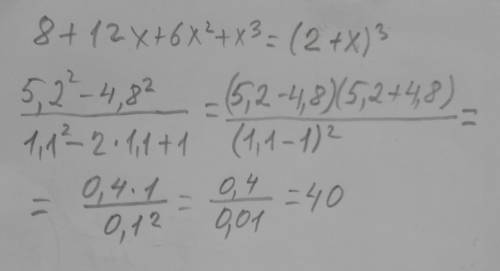 8+12x+6x²+x³=(2+x)³
(5,2²-4,8²)/(1,1²-2·1,1+1) = ((5,2-4,8)(5,2+4,8))/(1,1-1)² =
= (0,4·1)/0,1² = 0,4/0,01 = 40